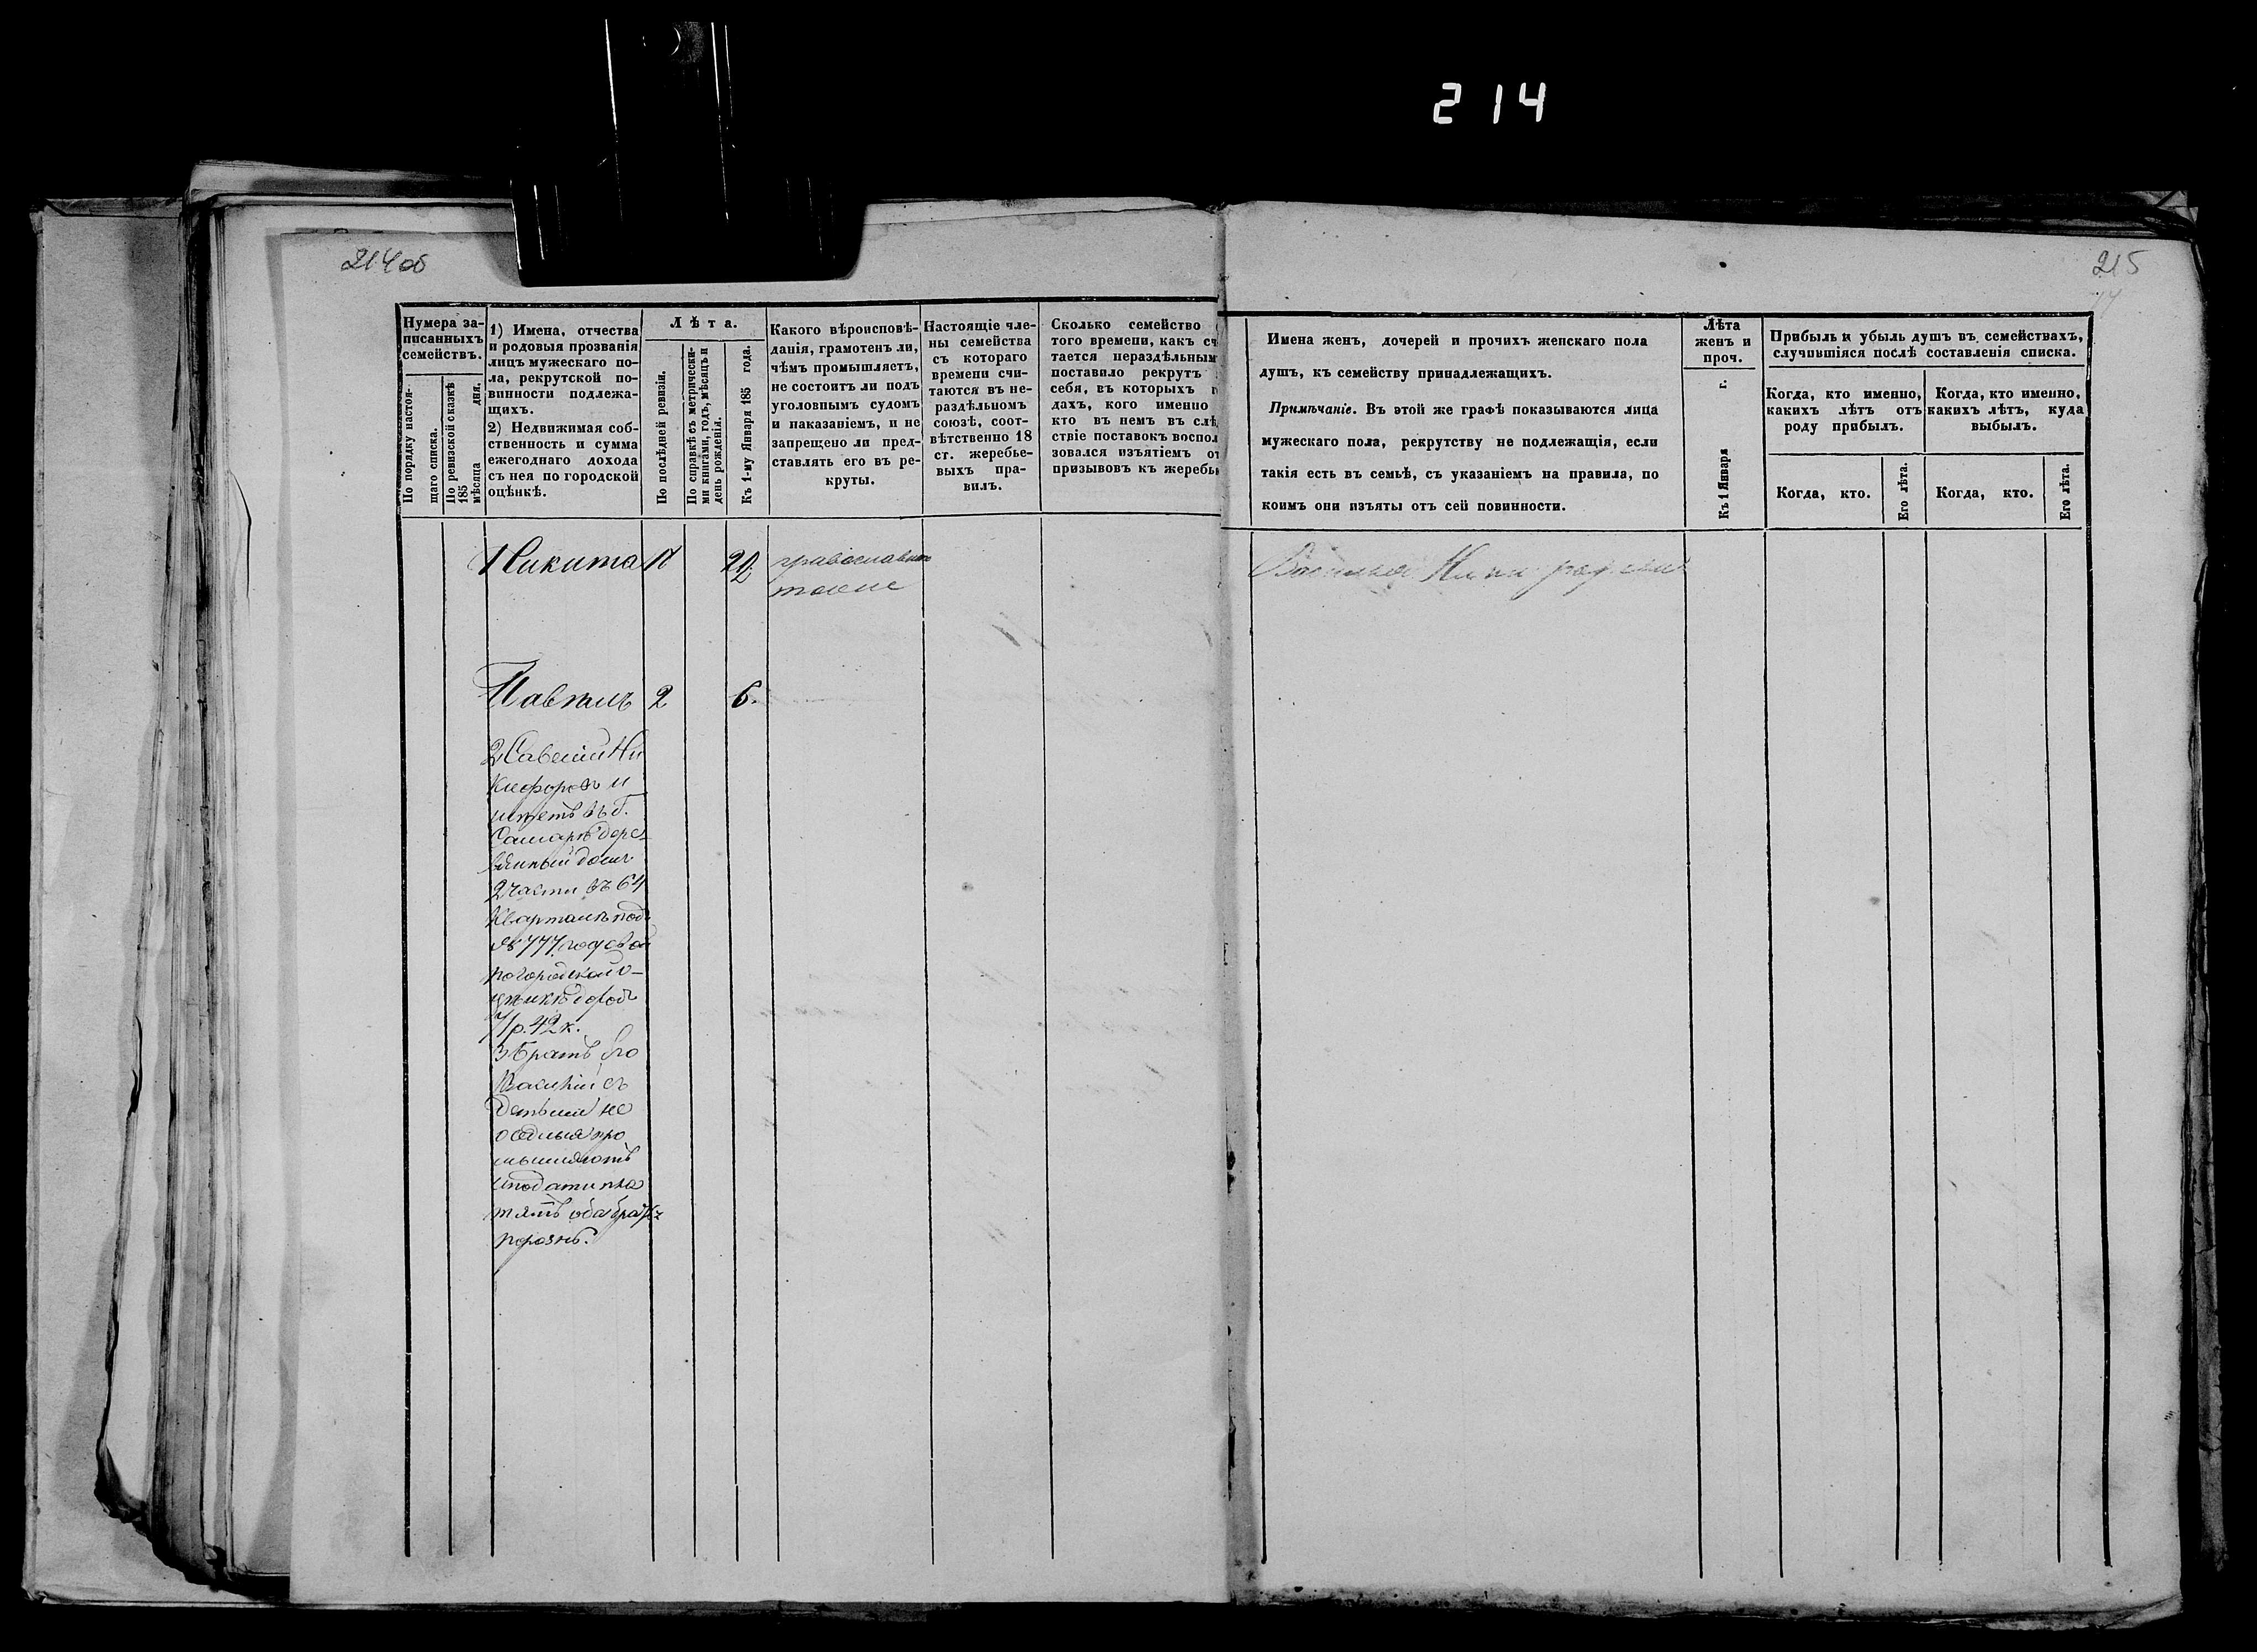 214
214 об
215
Нумера за-
писанныхъ
семействъ.
По порядку настоя-
щаго списка.
По ревизской сказкѣ
185 мѣсяца дня.
1) Имена, отчества
и родовыя прозванія
лицъ мужескаго по-
ла, рекрутской по-
винности подлежа-
щихъ.
2) Недвижимая соб-
ственность и сумма
ежегоднаго дохода
съ нея по городской
оцѣнкѣ.
Лѣта.
По послѣдней ревизіи.
По справкѣ съ метрически-
ми книгами, годъ, мѣсяцъ и
день рожденія.
Къ 1-му Января 185 года.
Какого вѣроисповѣ-
данія, грамотенъ ли,
чѣмъ промышляетъ,
не состоитъ ли подъ
уголовнымъ судомъ
и наказаніемъ, и не
запрещено ли пред-
ставлять его въ ре-
круты.
Настоящіе чле-
ны семейства
съ котораго
времени счи-
таются въ не-
раздѣльномъ
союзѣ, соот-
вѣтственно 18
ст. жеребье-
выхъ пра-
вилъ.
Сколько семейство
того времени, какъ сч
тается нераздѣльным
поставило рекрутъ
себя, въ которыхъ г
дахъ, кого именно
кто въ немъ въ слѣ
ствіе поставокъ воспол
зовался изъятіемъ от
призывовъ къ жеребь
Имена женъ, дочерей и прочихъ женскаго пола
душъ, къ семейству принадлежащихъ.
Примѣчаніе. Въ этой же графѣ показываются лица
мужескаго пола, рекрутству не подлежащія, если
такія есть въ семьѣ, съ указаніемъ на правила, по
коимъ они изъяты отъ сей повинности.
Лѣта
женъ и
проч.
Къ 1 Января г.
Прибыль и убыль душъ въ семействахъ,
случившіяся послѣ составленія списка.
Когда, кто именно,
какихъ лѣтъ отъ
роду прибылъ.
Когда, кто именно,
какихъ лѣтъ, куда
выбылъ.
Когда, кто.
Его лѣта.
Когда, кто.
Его лѣта.
Никита православн
тоже
Павелъ 2 6.
2 Савелій Ни
кифоровъ и
имѣетъ въ г.
Самарѣ дере-
вянный домъ
2 части въ 64
кварталѣ подъ
№ 777. годовой
по городской о-
цѣнкѣ доходъ
7 р. 42 к.
3 Братъ его
Василій съ
детьми не
промы
шляютъ
и подати пла
тятъ оба брата
порознь.